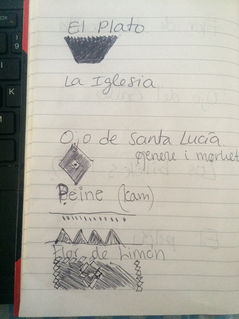 El Plato
La Iglesia
Ojo de Santa Lucía
genere i market
Peine (kam)
Flor de Limon